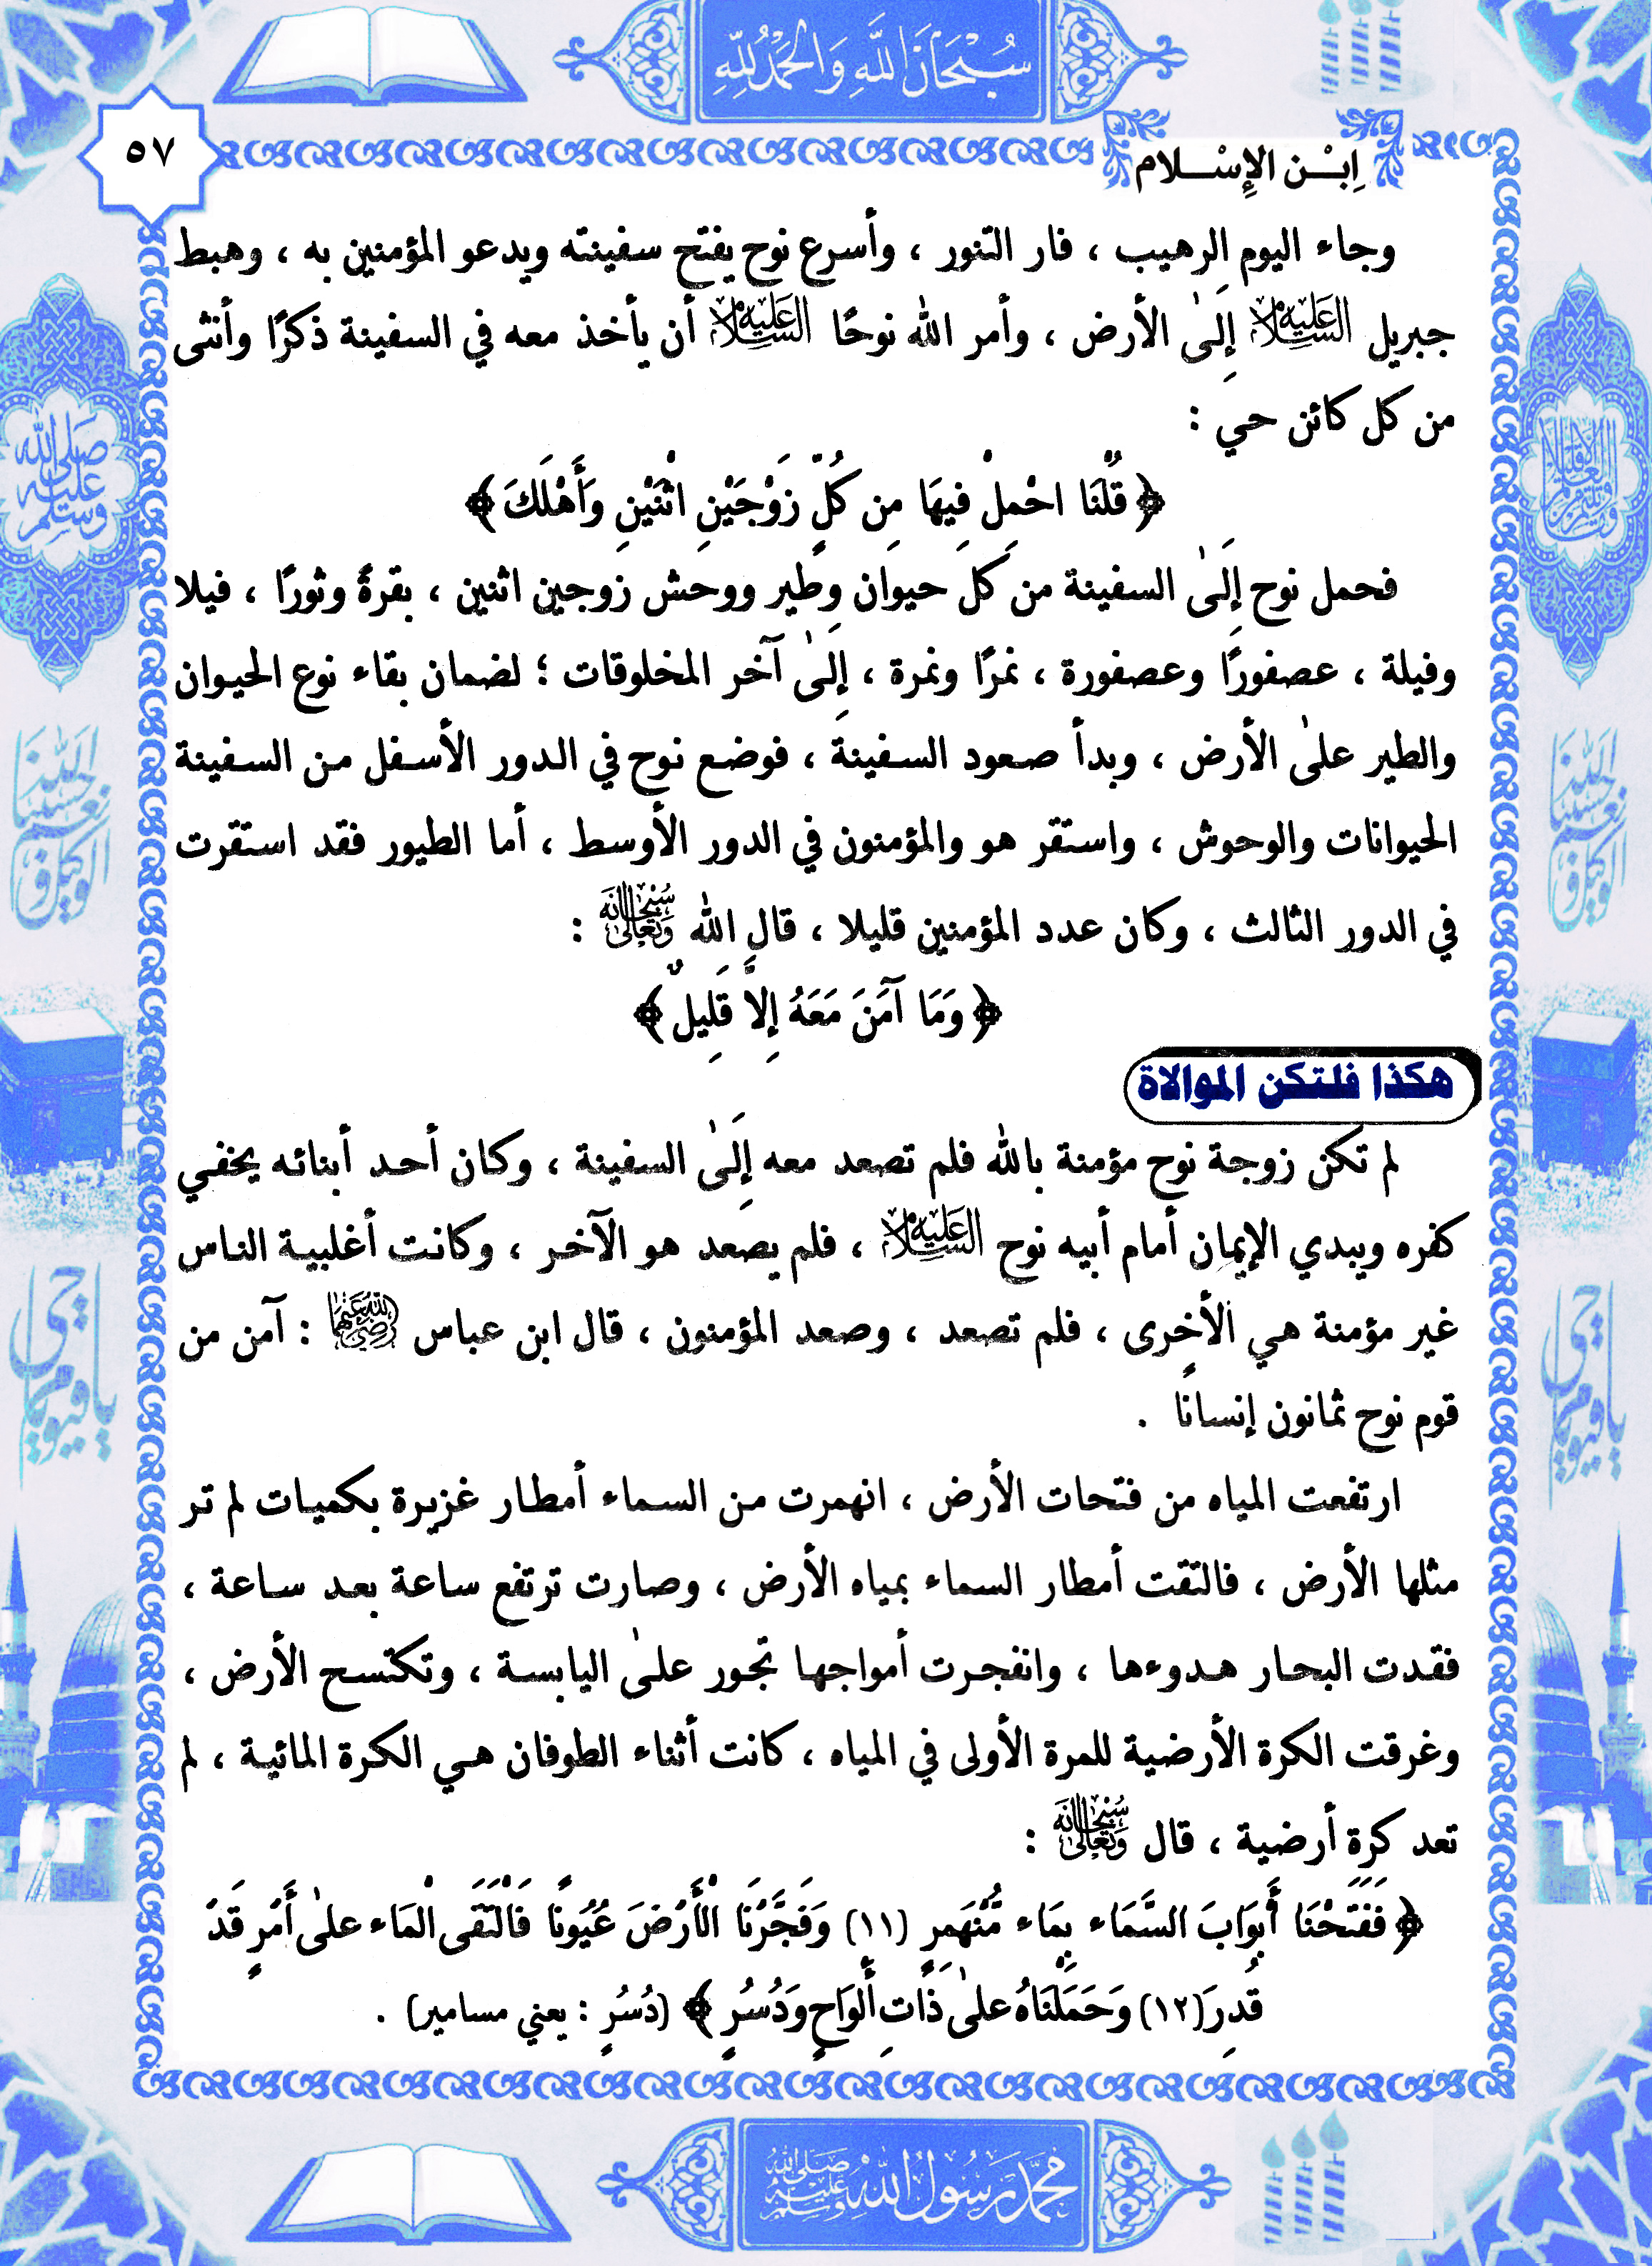 سُبْحَانَ اللَّهِ وَالْحَمْدُ لِلَّهِ
٥٧
اِبْـن الإِسْـلام
وجاء اليوم الرهيب ، فار التنور ، وأسرع نوح يفتح سفينته ويدعو المؤمنين به ، وهبط
جبريل عليه السلام إِلَىٰ الأرض ، وأمر الله نوحًا عليه السلام أن يأخذ معه في السفينة ذكرًا وأنثى
من كل كائن حي :
﴿ قُلْنَا احْمِلْ فِيهَا مِن كُلٍّ زَوْجَيْنِ اثْنَيْنِ وَأَهْلَكَ ﴾
فحمل نوح إِلَىٰ السفينة من كل حيوان وطير ووحش زوجين اثنين ، بقرةً وثورًا ، فيلا
وفيلة ، عصفورًا وعصفورة ، نمرًا ونمرة ، إِلَىٰ آخر المخلوقات ؛ لضمان بقاء نوع الحيوان
والطير علىٰ الأرض ، وبدأ صعود السفينة ، فوضع نوح في الدور الأسفل من السفينة
الحيوانات والوحوش ، واستقر هو والمؤمنون في الدور الأوسط ، أما الطيور فقد استقرت
في الدور الثالث ، وكان عدد المؤمنين قليلا ، قال الله سبحانه وتعالى :
﴿ وَمَا آمَنَ مَعَهُ إِلاَّ قَلِيلٌ ﴾
هكذا فلتكن الموالاة
لم تكن زوجة نوح مؤمنة بالله فلم تصعد معه إِلَىٰ السفينة ، وكان أحد أبنائه يخفي
كفره ويبدي الإيمان أمام أبيه نوح عليه السلام ، فلم يصعد هو الآخر ، وكانت أغلبية الناس
غير مؤمنة هي الأخرى ، فلم تصعد ، وصعد المؤمنون ، قال ابن عباس رضي الله عنهما : آمن من
قوم نوح ثمانون إنسانًا .
ارتفعت المياه من فتحات الأرض ، انهمرت من السماء أمطار غزيرة بكميات لم تر
مثلها الأرض ، فالتقت أمطار السماء بمياه الأرض ، وصارت ترتفع ساعة بعد ساعة ،
فقدت البحار هدوءها ، وانفجرت أمواجها تجور علىٰ اليابسة ، وتكتسح الأرض ،
وغرقت الكرة الأرضية للمرة الأولى في المياه ، كانت أثناء الطوفان هي الكرة المائية ، لم
تعد كرة أرضية ، قال سبحانه وتعالى :
﴿ فَفَتَحْنَا أَبْوَابَ السَّمَاء بِمَاء مُّنْهَمِرٍ (١١) وَفَجَّرْنَا الْأَرْضَ عُيُونًا فَالْتَقَى الْمَاء علىٰ أَمْرٍ قَدْ
قُدِرَ (١٢) وَحَمَلْنَاهُ علىٰ ذَاتِ أَلْوَاحٍ وَدُسُرٍ ﴾ (دُسُرٍ : يعني مسامير) .
محمد رسول الله صلى الله عليه وسلم
صلى الله عليه وسلم
حسبنا الله ونعم الوكيل
حسبنا الله ونعم الوكيل
يا حي يا قيوم
يا حي يا قيوم